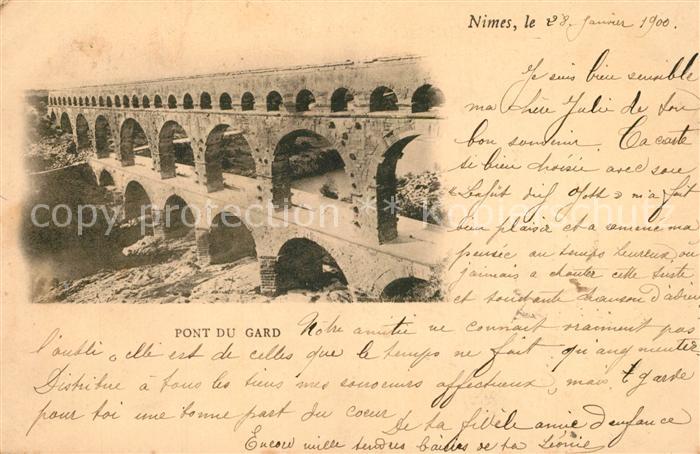 Nimes, le 28 Janvier 1900.
Je suis bien sensible
ma chère Julie de ton
bon souvenir. Ta carte
si bien choisie avec son
« Behüt dich Gott » m'a fait
bien plaisir et a ramené ma
pensée au temps heureux où
jamais a chanter cette triste
et touchante chanson d'adieu
copy photo * Kopierschutz
PONT DU GARD
Notre amitié ne connait vraiment pas
l'oubli, elle est de celles que le temps ne fait qu'augmenter
Distribue à tous les tiens mes souvenirs affectueux, mais garde
pour toi une bonne part du coeur
De ta fidèle amie d'enfance
Encore mille tendres baisers de ta Léonie